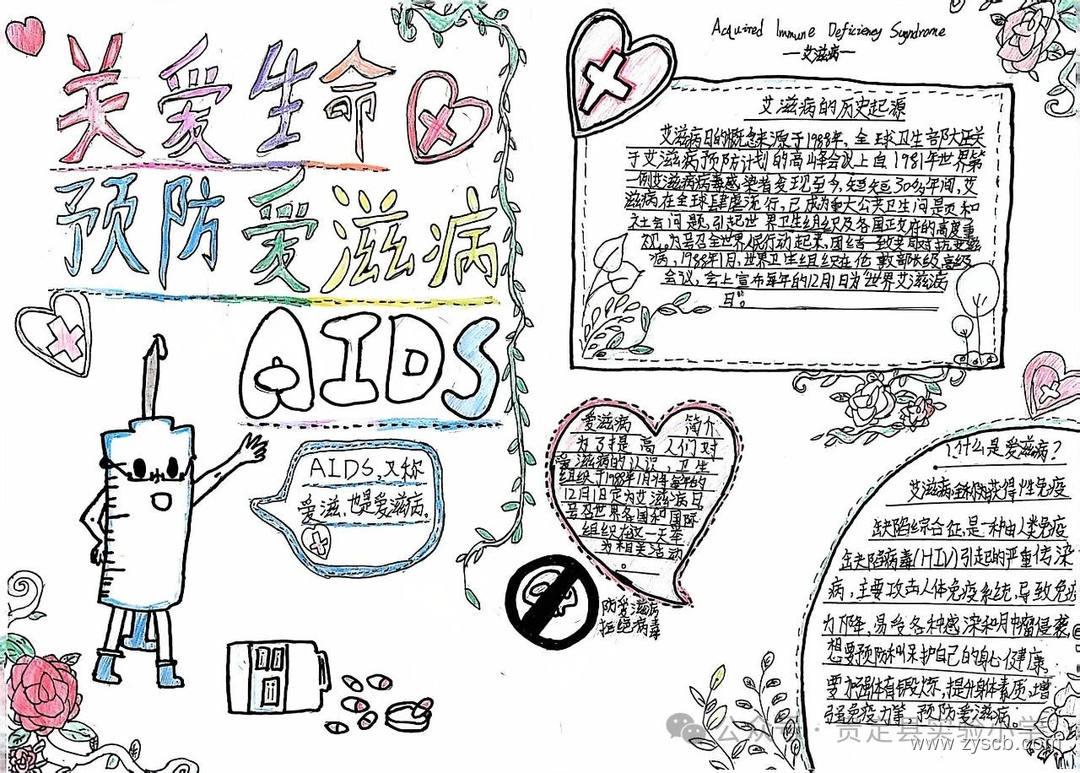 关爱生命
预防爱滋病
AIDS
AIDS,又称
爱滋,也是爱滋病。
Acquired Immune Deficiency Syndrome
—艾滋病—
艾滋病的历史起源
艾滋病日的概念来源于1988年,全球卫生部大臣关
于艾滋病预防计划的高峰会议上自1981年世界第
一例艾滋病病毒感染者发现至今,短短30多年间,艾
滋病在全球肆虐流行,已成为重大公共卫生问题和
社会问题,引起世界卫生组织及各国政府的高度重
视。为号召全世界人民行动起来,团结一致
病,1988年1月,世界卫生组织在伦敦部长级高级
会议,会上宣布每年的12月1日为"世界艾滋病
日"。
爱滋病 简介
为了提高人们对
爱滋病的认识,卫生
组织于1988年1月将每年的
12月1日定为艾滋病日
号召世界各国和国际
组织在这一天举
办相关活动
。
防爱滋病
拒绝病毒
什么是爱滋病?
艾滋病 获得性免疫
缺陷综合征,是一种由人类免疫
缺陷病毒(HIV)引起的严重传染
病,主要攻击人体免疫系统,导致免疫
力下降,易受各种感染和肿瘤侵袭,
想要预防和保护自己的身心健康
要加强体育锻炼,提升身体素质,增
强免疫力等,预防爱滋病。
公众号·贵定县实验小学
www.zyscb.com